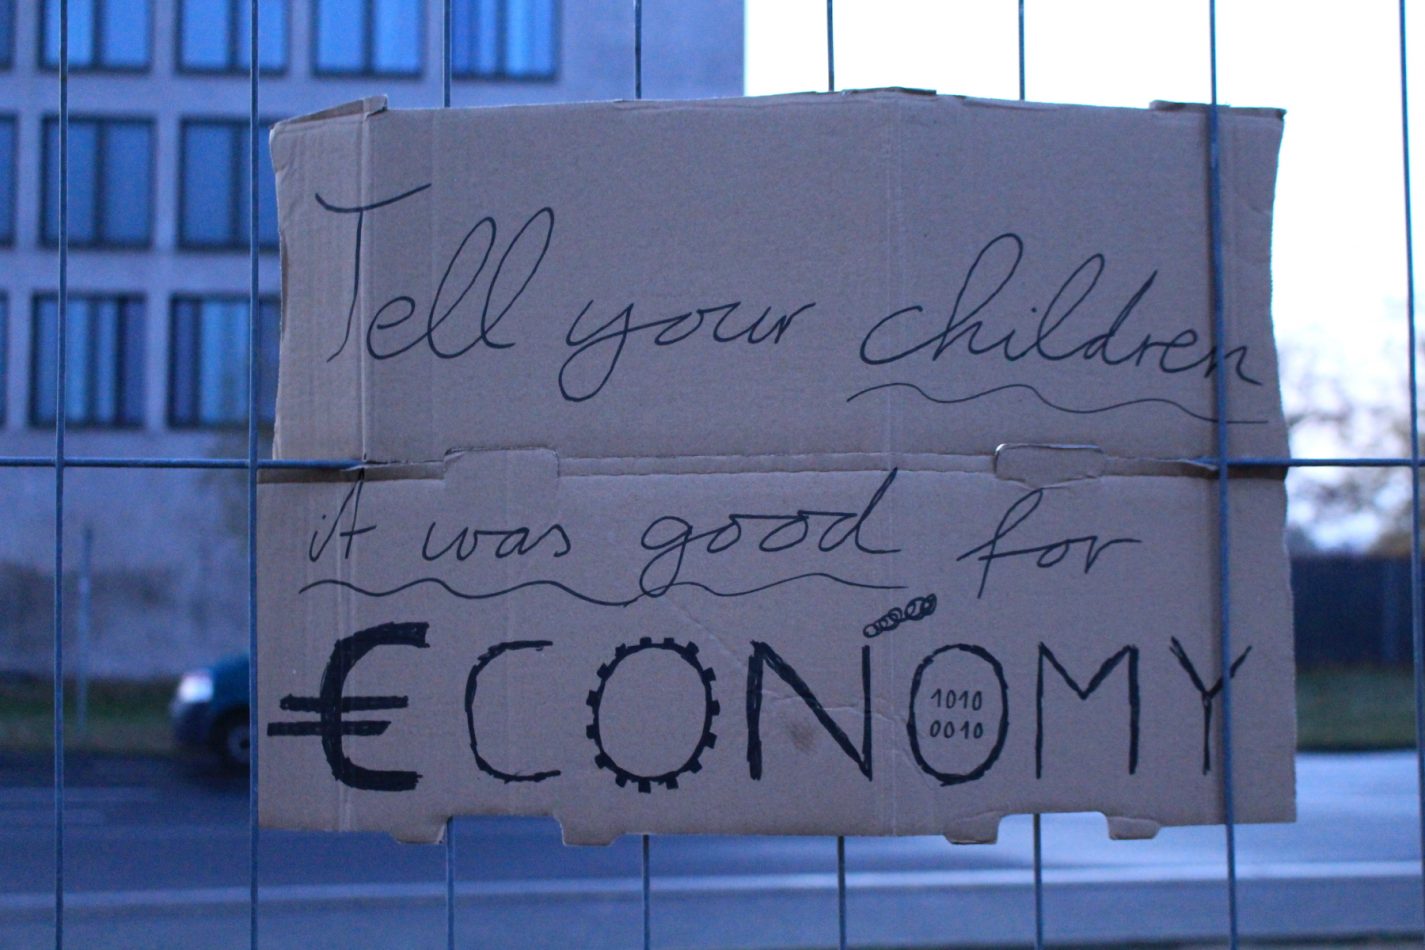 Tell your children
it was good for
€CONOMY
1010
0010